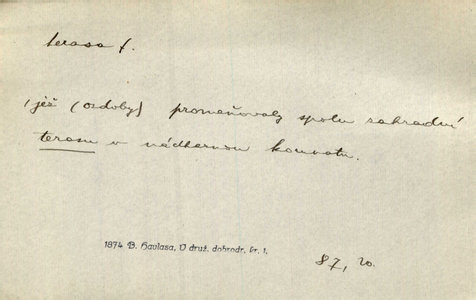 terasa f.
jež (ozdoby) proměňovaly spolu zahradní
terasu v nádhernou komnatu.
1874 B. Havlasa, V druž. dobrodr. kr. 1.
87, 20.